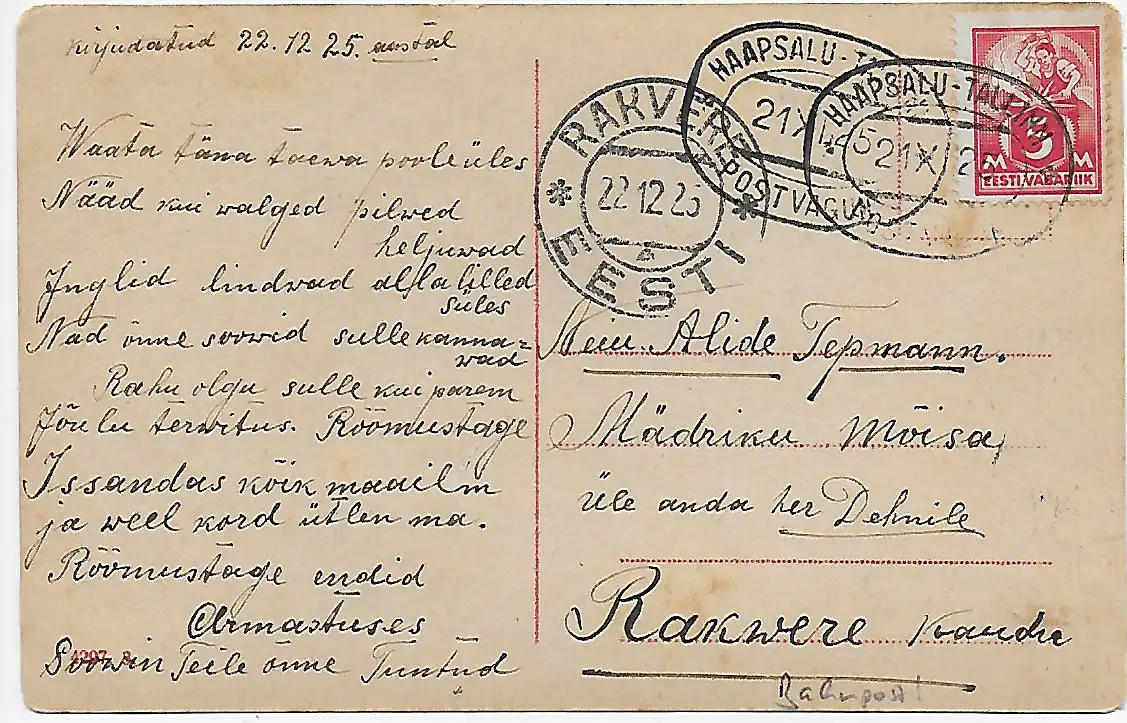 kirjudatud 22.12 25. aastal
Waata täna taewa poole üles
Nääd kui walged pilwed
heljuwad
Inglid lindwad alla lilled
süles
Nad önne soowid sulle kanna=
wad
Rahu olgu sulle kui parem
Jõulu terwitus. Röömustage
Issandas kõik maailm
ja weel kord ütlen ma.
Röömustage endid
Armastuses
Soowin Teile önne Tuntud
4297
RAKVERE
22 12 25
EESTI
HAAPSALU-TALLINN
21 X 25
POSTVAGUN
HAAPSALU-TALLINN
21 X 2
5
M M
EESTI VABARIIK
Alide Tepmann.
Mädriku Mõisa,
üle anda her Dehnile
Rakwere
Bahnpost!